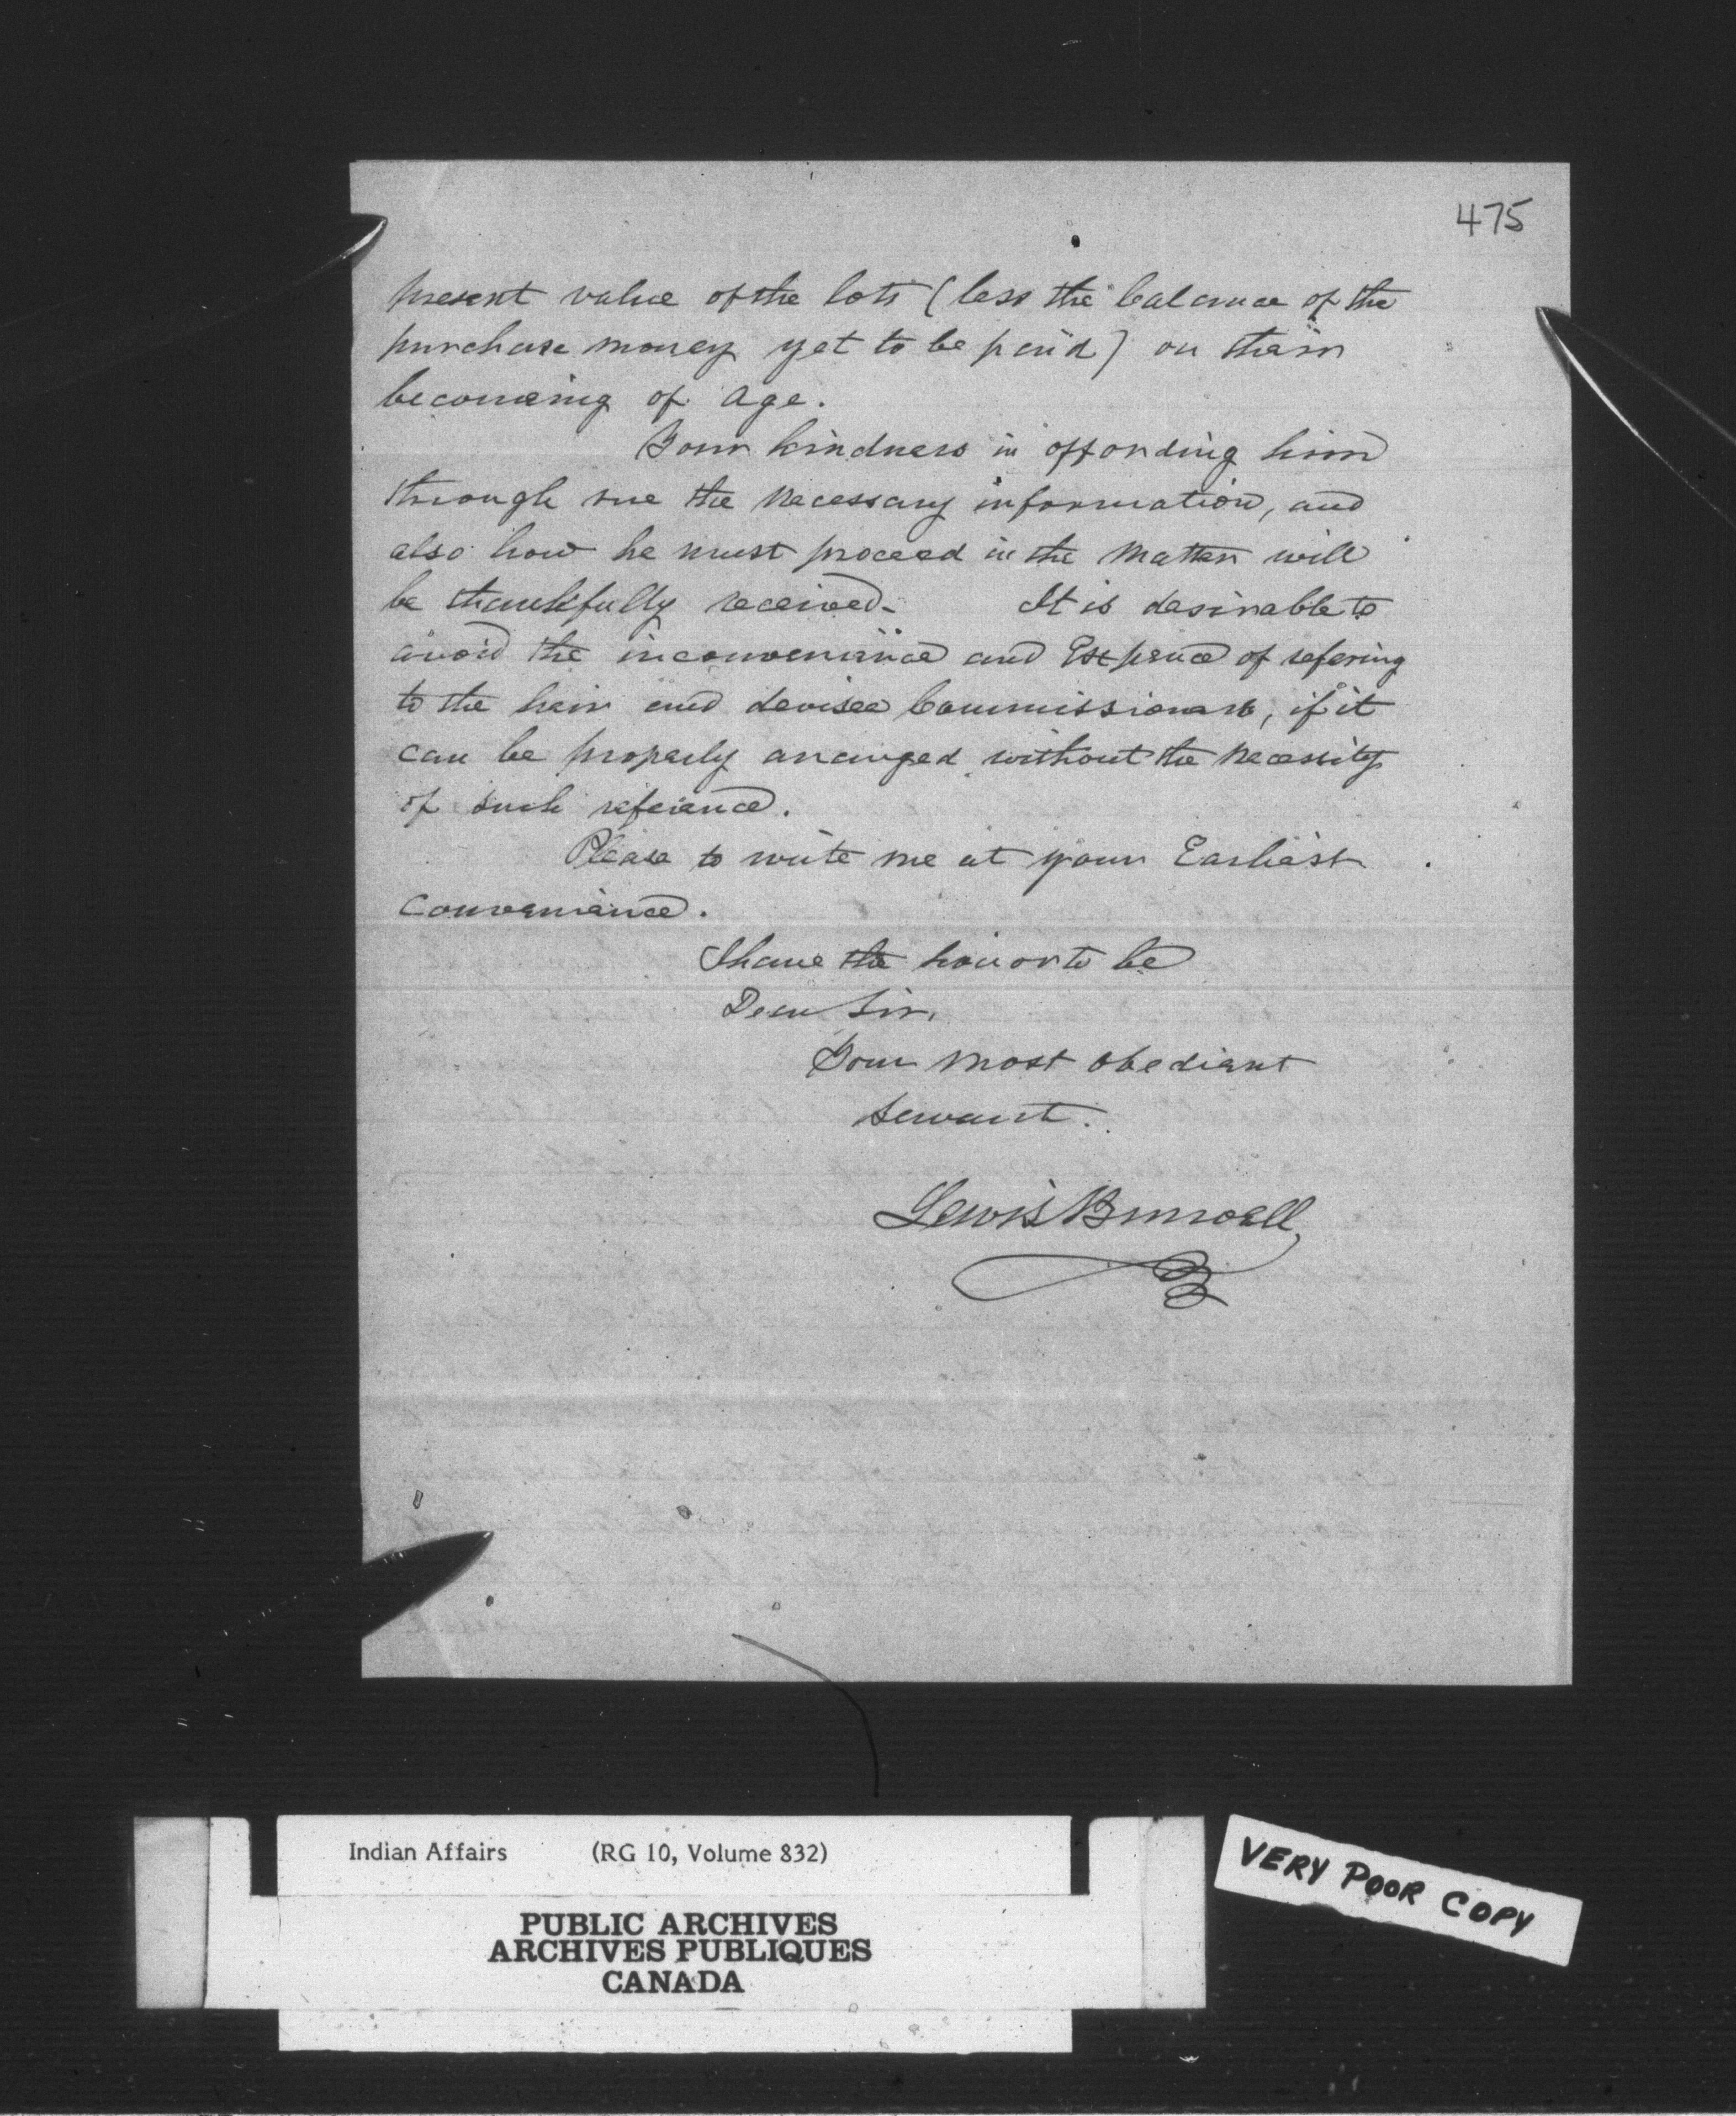 475
present value of the lots (less the balance of the
purchase money yet to be paid) on their
becoming of age.
Your kindness in affording him
through me the necessary information, and
also how he must proceed in the matter will
be thankfully received. It is desirable to
avoid the inconvenience and Expence of refering
to the heir and devisee Commissioners, if it
can be properly arranged without the necessity
of such referance.
Please to write me at your Earliest
Convenience.
I have the honor to be
Dear Sir,
Your most obedient
Servant.
Lewis Burwell
Indian Affairs (RG 10, Volume 832)
PUBLIC ARCHIVES
ARCHIVES PUBLIQUES
CANADA
VERY POOR COPY